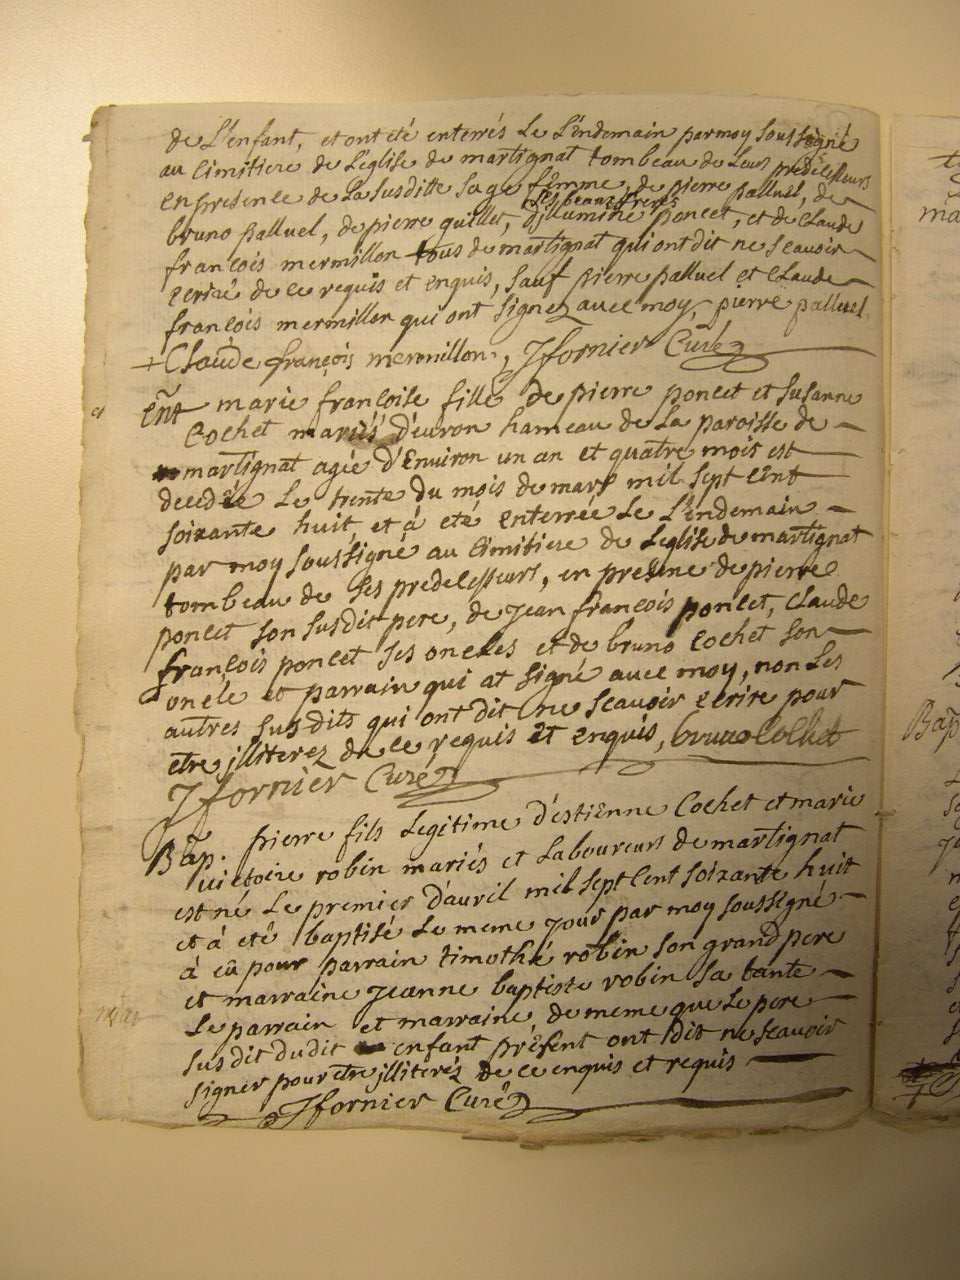 de L'enfant, et ont été enterrés Le L'endemain par moy soussigné
au cimitiere de L'eglise de martignat tombeau de Leurs predecesseurs
en presence de La susditte sage femme, de pierre palluel, de
ses beaux freres
bruno palluel, de pierre quillet, d'illumine poncet, et de claude
françois mermillon tous de martignat qui ont dit ne scavoir
ecrire de ce requis et enquis, sauf pierre palluel et claude
françois mermillon qui ont signez avec moy, pierre palluel
+ Claude françois mermillon, Jfornier Curé
Ent marie françoise fille de pierre poncet et susanne
Cochet mariés d'evron hameau de La paroisse de
martignat agée d'Environ un an et quatre mois est
decedée Le trente du mois de mars mil sept cent
soixante huit, et à eté enterrée Le L'endemain
par moy soussigné au cimitiere de L'eglise de martignat
tombeau de ses predecesseurs, en presence de pierre
poncet son susdit pere, de jean françois poncet, claude
françois poncet ses oncles et de bruno Cochet son
oncle et parrain qui at signé avec moy, non Les
autres susdits qui ont dit ne scavoir ecrire pour
etre jlliterez de ce requis et enquis, bruno Cochet
Jfornier Curé
Bap. pierre fils Legitime d'estienne Cochet et marie
victoire robin mariés et Laboureurs de martignat
est né Le premier d'avril mil sept cent soixante huit
et à eté baptisé Le meme jour par moy soussigné
à eû pour parrain timothé robin son grand pere
et marraine jeanne baptiste robin sa tante
Le parrain et marraine de meme que Le pere
susdit dudit enfant présent ont dit ne scavoir
signer pour etre jlliterés de ce enquis et requis
Jfornier Curé
Bap